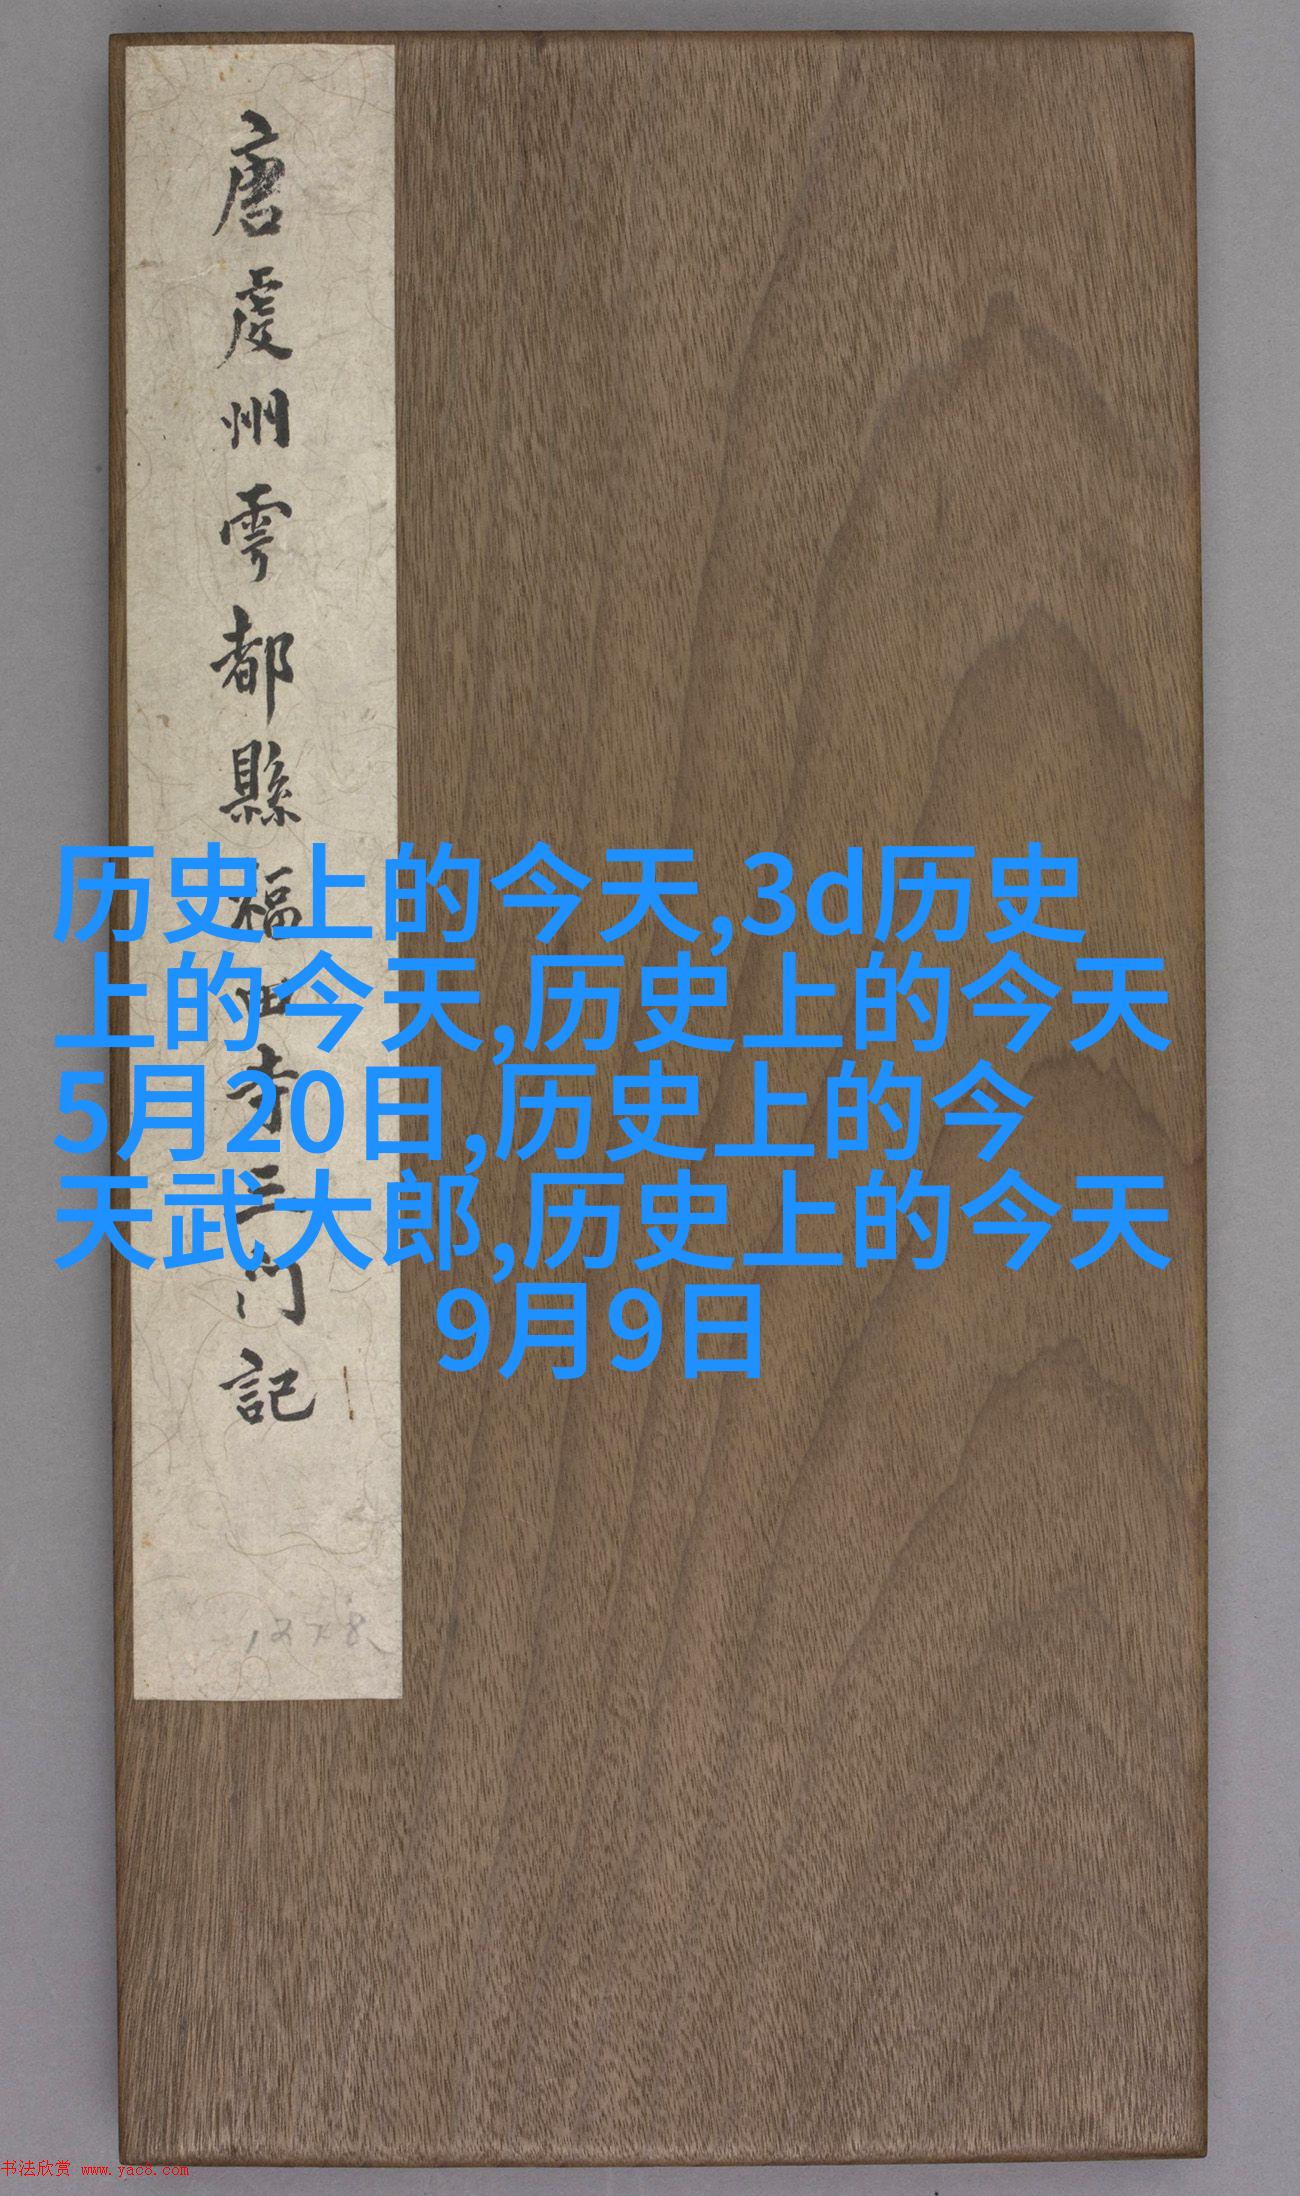 唐虔州雩都縣福田寺三門記
1278
历史上的今天,3d历史
上的今天,历史上的今天
5月20日,历史上的今
天武大郎,历史上的今天
9月9日
书法欣赏 www.yac8.com